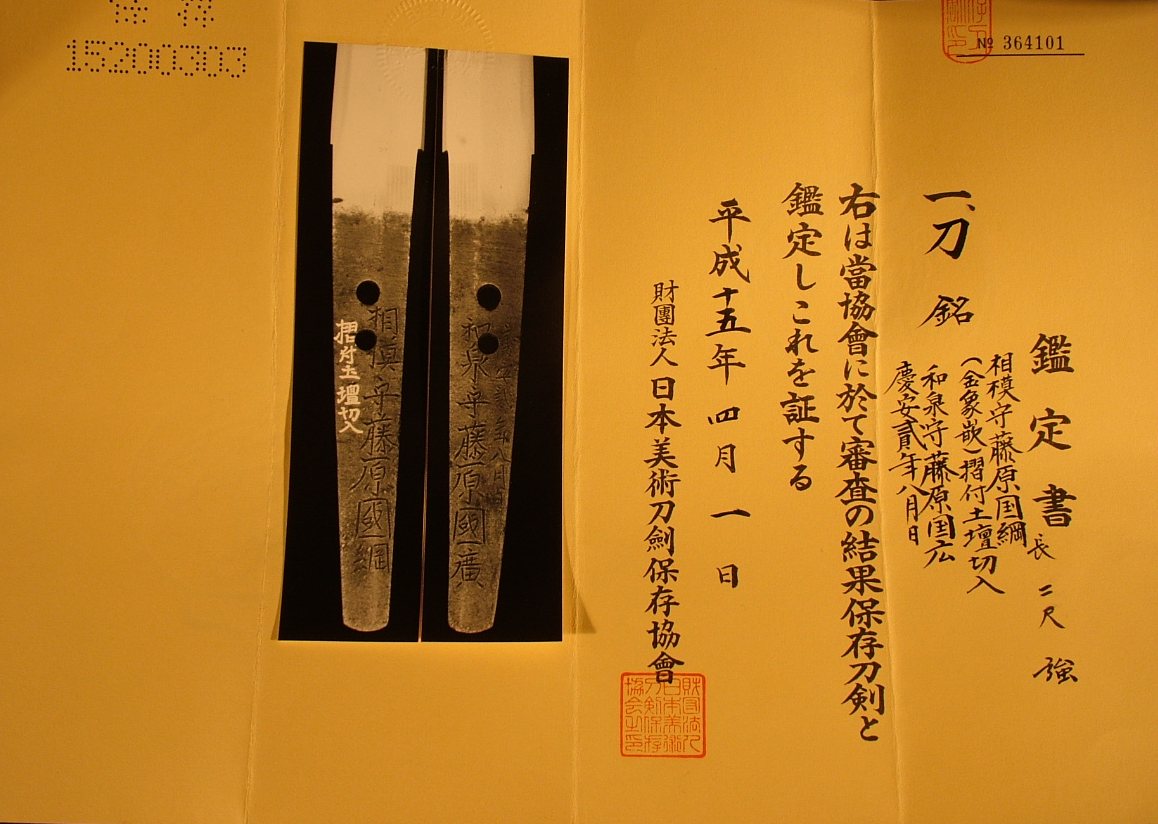 № 364101
鑑定書
一、刀 銘
相模守藤原国綱
(金象嵌)摺付土壇切入
和泉守藤原国広
慶安貳年八月日
長 二尺 強
右は當協會に於て審査の結果保存刀剣と
鑑定しこれを証する
平成十五年四月一日
財團法人日本美術刀劍保存協會
財団法人
日本美術
刀剣保存
協会之印
和泉守藤原國廣
相模守藤原國綱
摺付土壇切入
15200303